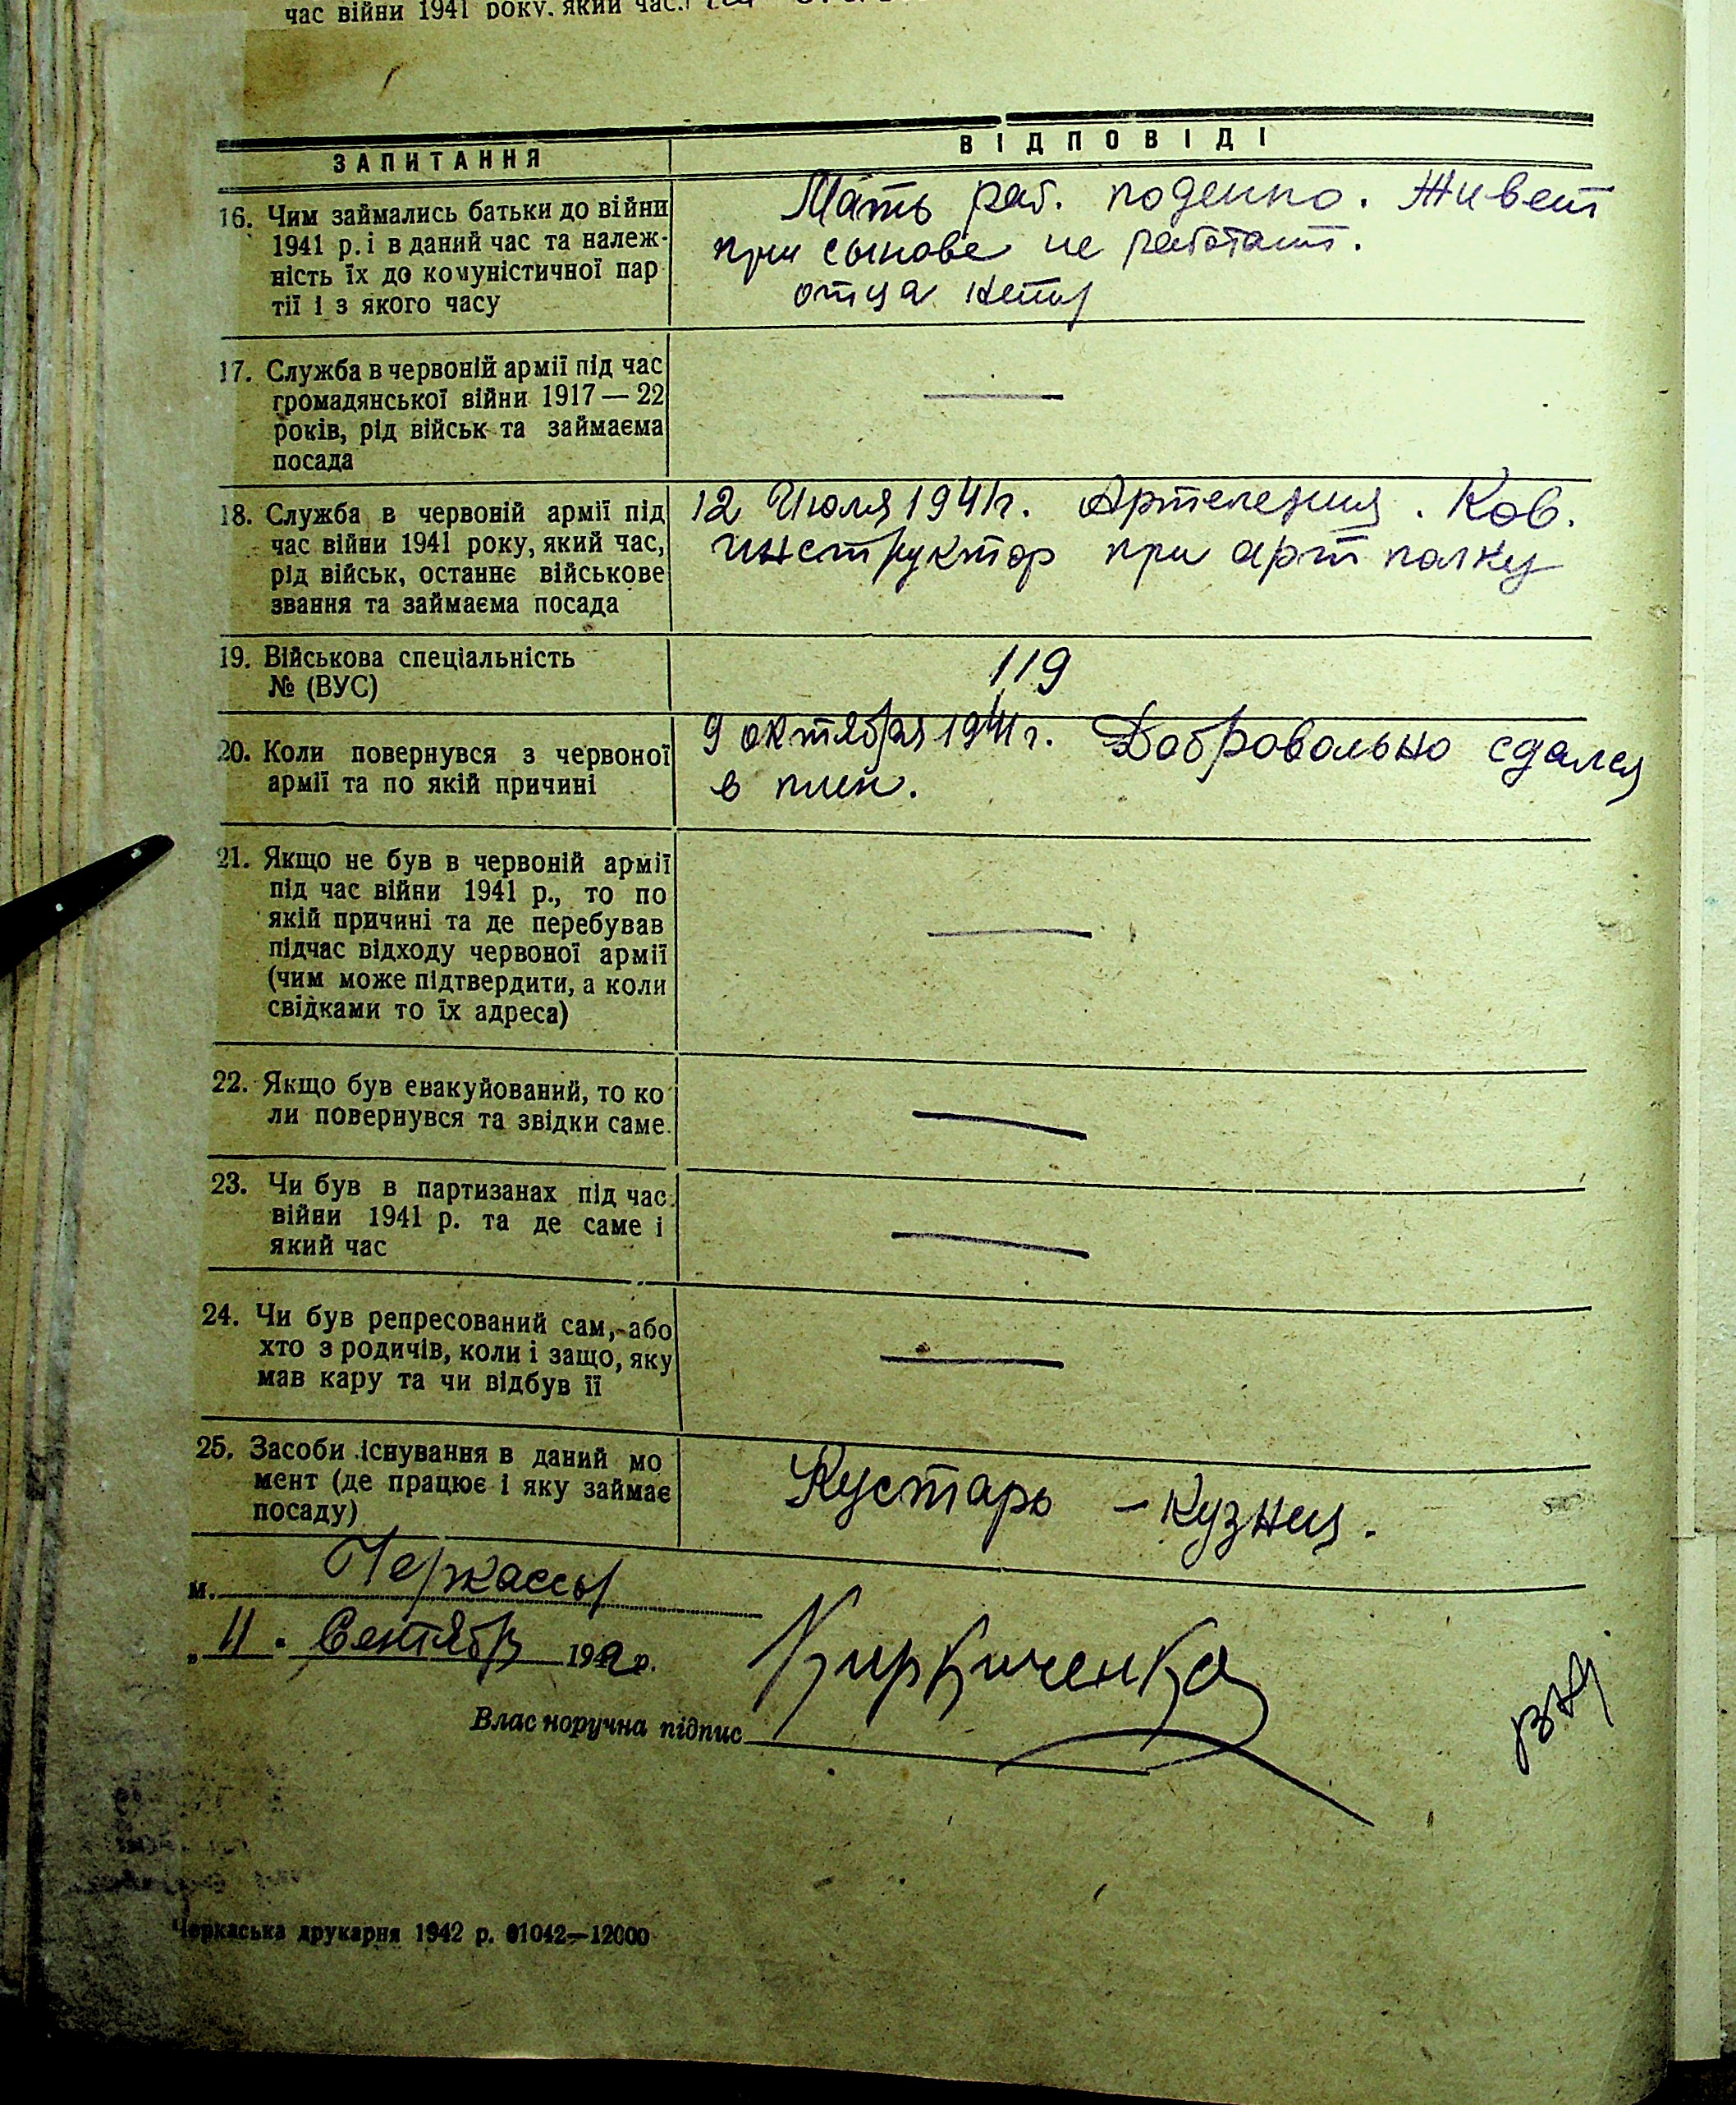 час війни 1941 року, який час,
ЗАПИТАННЯ
ВІДПОВІДІ
16. Чим займались батьки до війни
1941 р. і в даний час та належ-
ність їх до комуністичної пар
тії і з якого часу
Мать раб. поденно. Живет
при сынове не работает.
отца нету
17. Служба в червоній армії під час
громадянської війни 1917 — 22
років, рід військ та займаєма
посада
18. Служба в червоній армії під
час війни 1941 року, який час,
рід військ, останнє військове
звання та займаєма посада
12 Июля 1941г. Артелерия. Ков.
инструктор при арт полку
19. Військова спеціальність
№ (ВУС)
119
20. Коли повернувся з червоної
армії та по якій причині
9 октября 1941г. Добровольно сдался
в плен.
21. Якщо не був в червоній армії
під час війни 1941 р., то по
якій причині та де перебував
підчас відходу червоної армії
(чим може підтвердити, а коли
свідками то їх адреса)
22. Якщо був евакуйований, то ко
ли повернувся та звідки саме.
23. Чи був в партизанах під час
війни 1941 р. та де саме і
який час
24. Чи був репресований сам, або
хто з родичів, коли і защо, яку
мав кару та чи відбув її
25. Засоби існування в даний мо
мент (де працює і яку займає
посаду)
Кустарь – кузнец.
м. Черкассы
„ 11 . Сентябр 1942 р.
Власноручна підпис
Черкаська друкарня 1942 р. 01042—12000